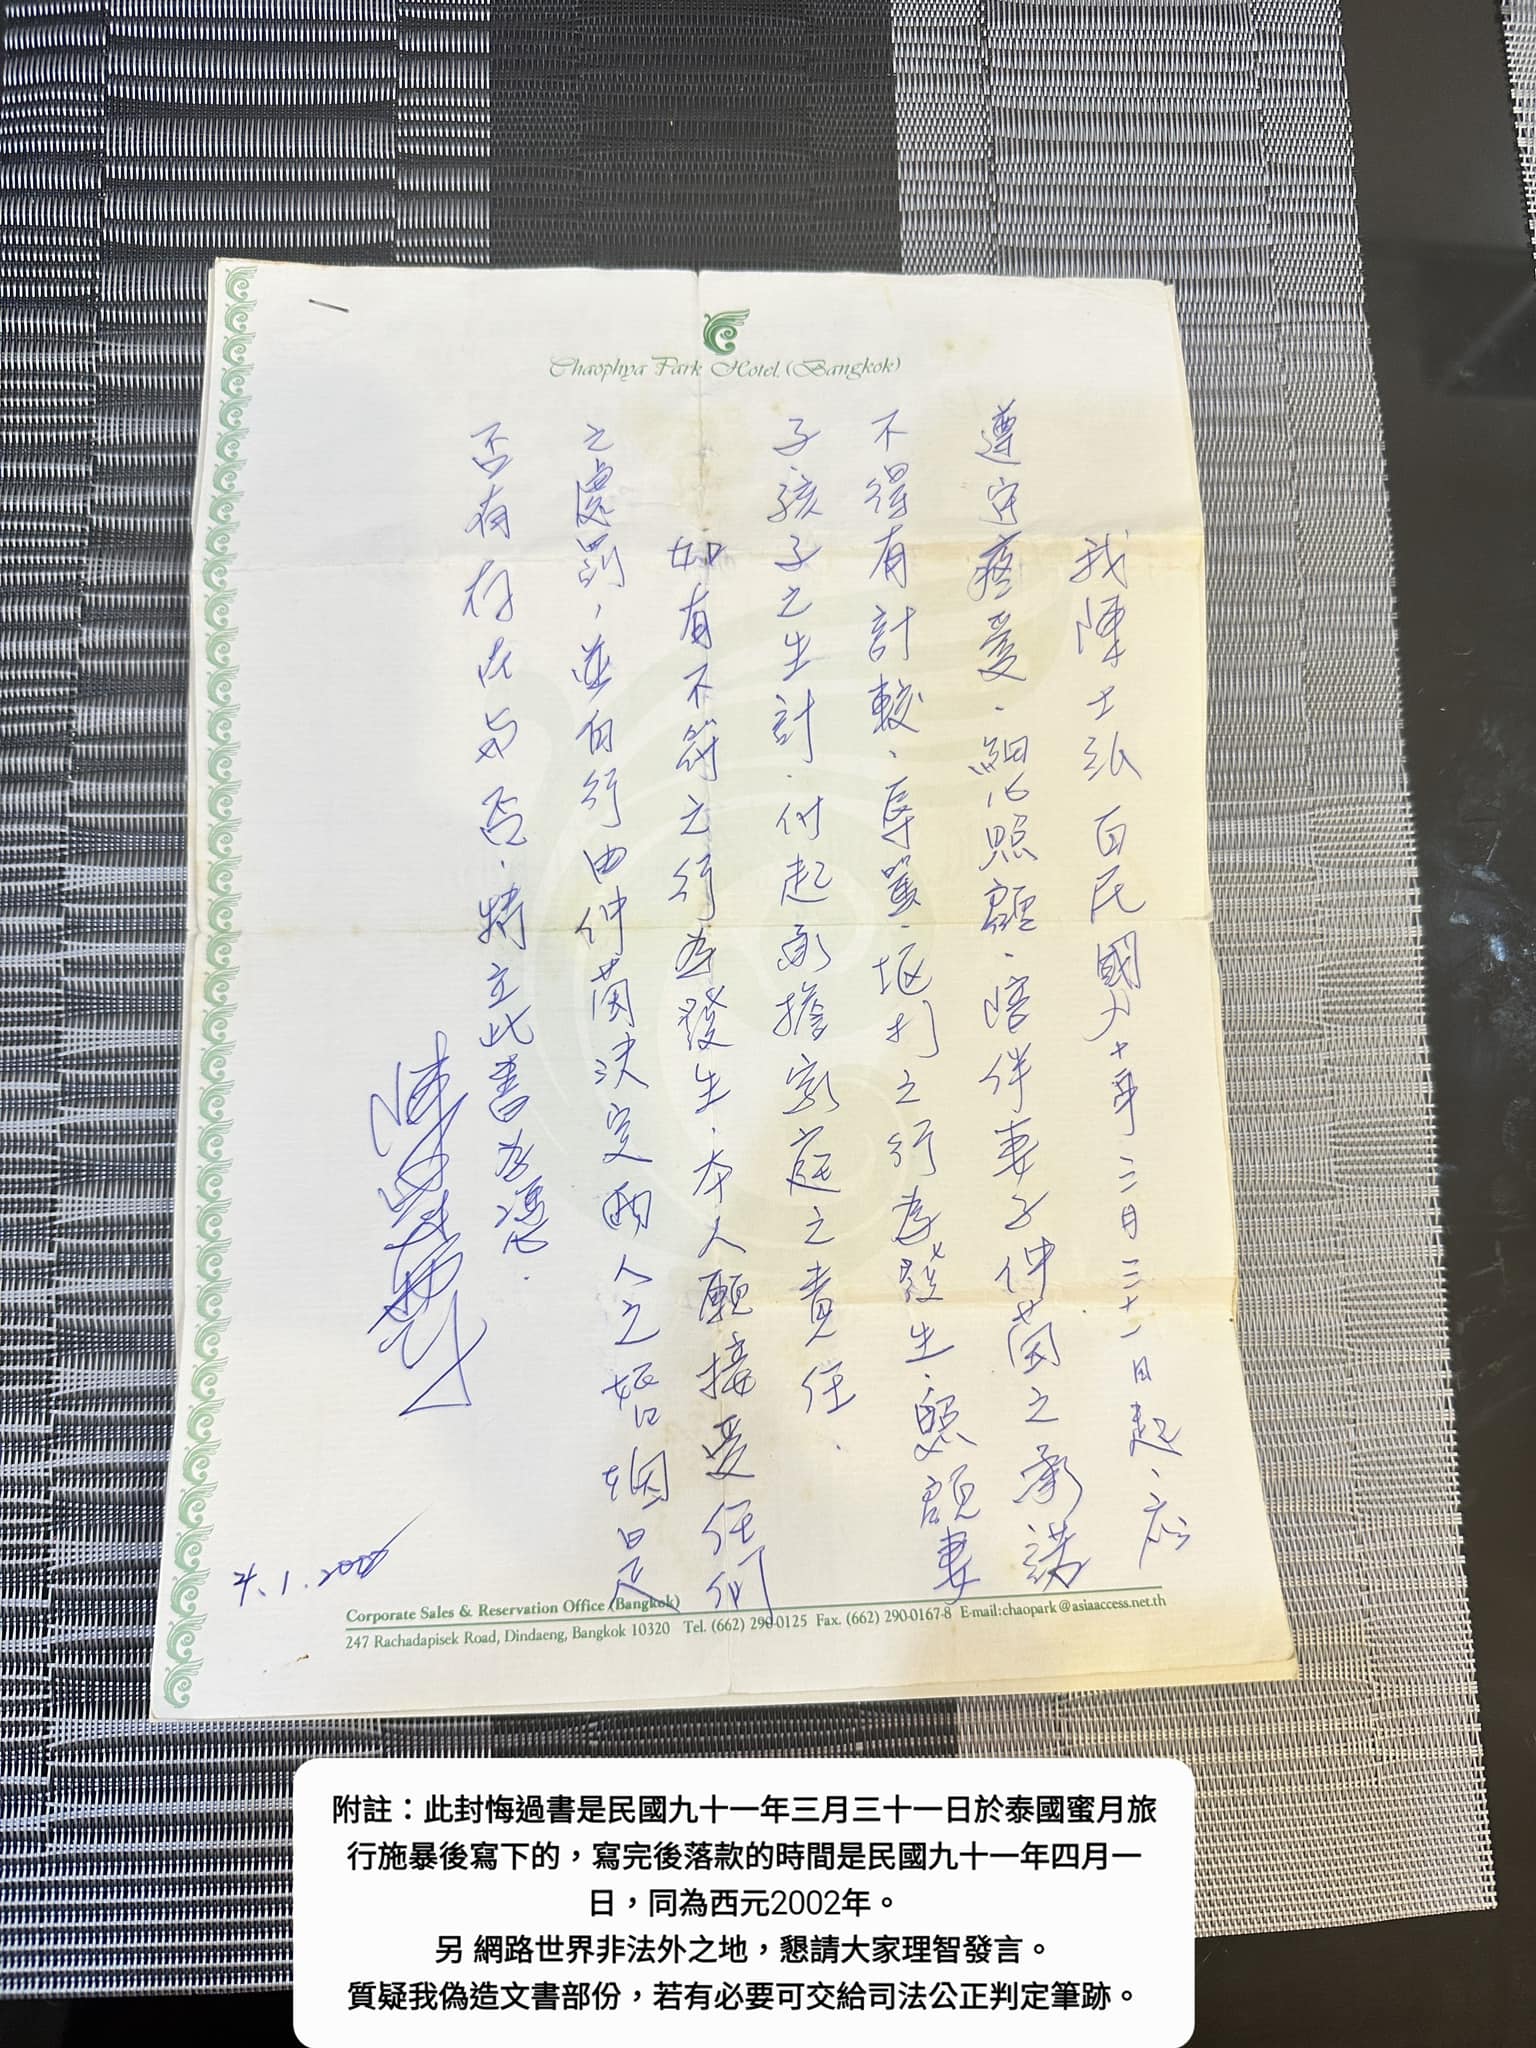 Chaophya Park Hotel. (Bangkok)
我陳士泓自民國九十年三月三十一日起、應
遵守疼愛、細心照顧、陪伴妻子仲茵之承諾
不得有計較、辱罵、抠打之行為發生、照顧妻
子孩子之生計、付起承擔家庭之責任、
如有不符之行為發生、本人願接受任何
之處罰，並自行由仲茵決定兩人之婚姻是
否有存在与否、特立此書為憑、
4.1.2002
Corporate Sales & Reservation Office (Bangkok)
247 Rachadapisek Road, Dindaeng, Bangkok 10320 Tel. (662) 290-0125 Fax. (662) 290-0167-8 E-mail:chaopark@asiaaccess.net.th
附註：此封悔過書是民國九十一年三月三十一日於泰國蜜月旅
行施暴後寫下的，寫完後落款的時間是民國九十一年四月一
日，同為西元2002年。
另 網路世界非法外之地，懇請大家理智發言。
質疑我偽造文書部份，若有必要可交給司法公正判定筆跡。